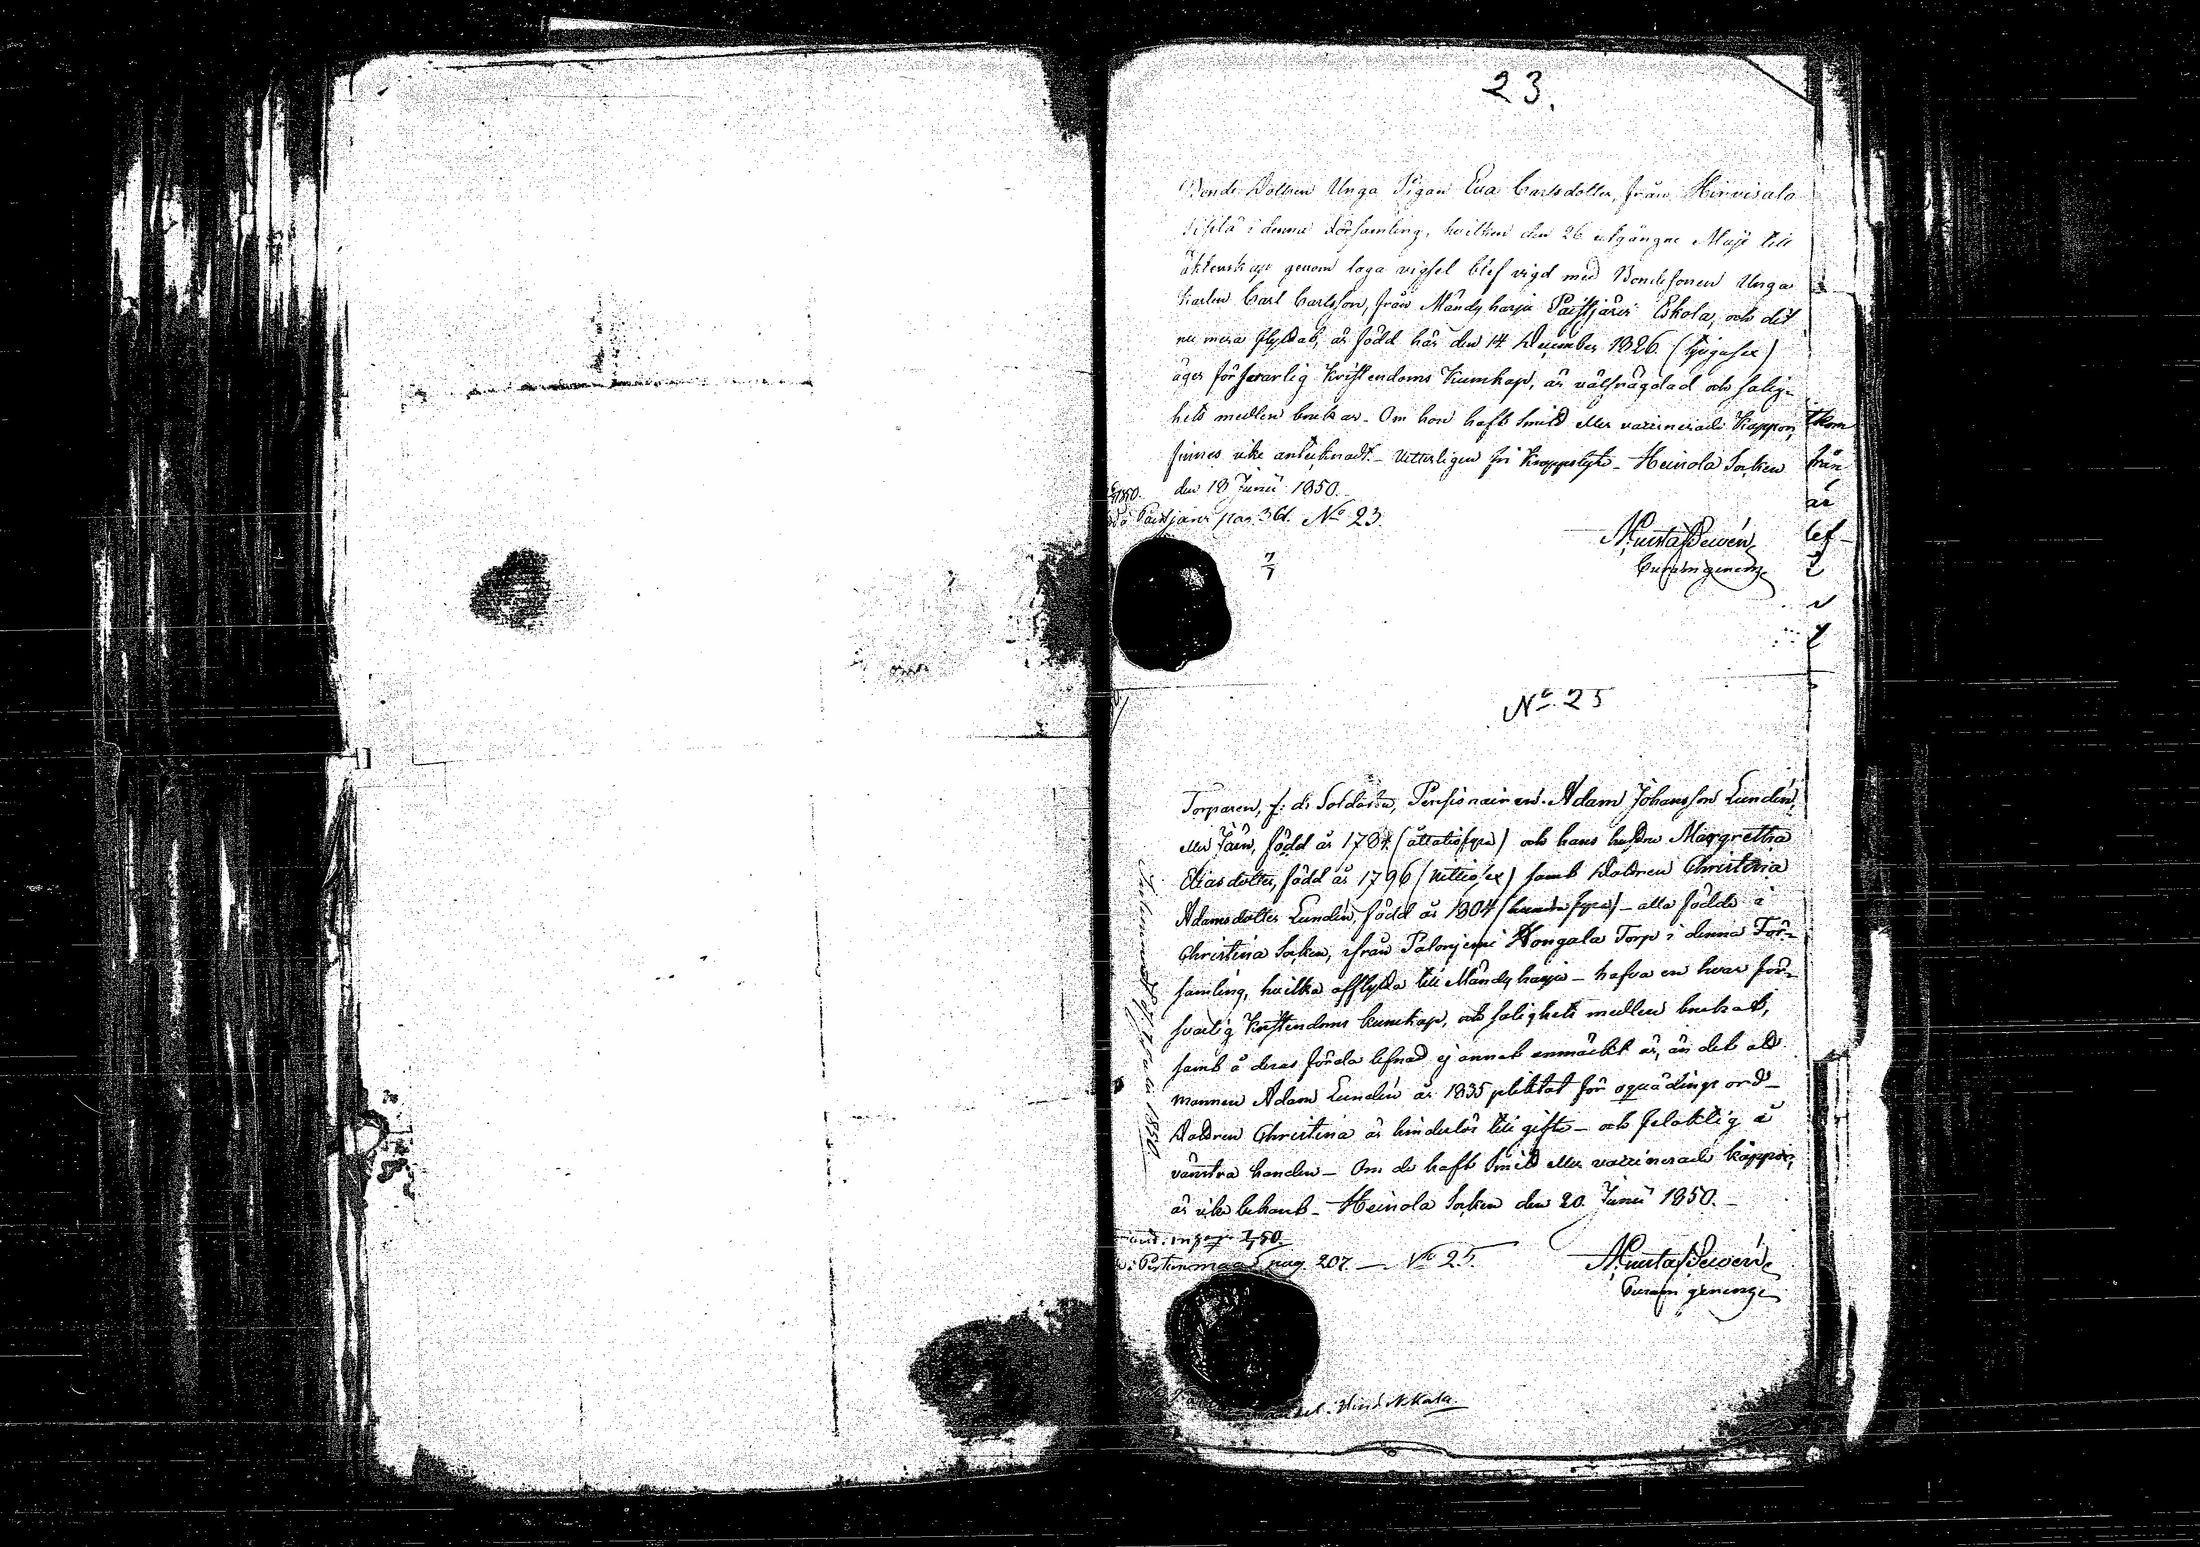 23.
Bonde Dottren Unga Pigan Eva Carlsdotter, från Hirvisalo
Sipilä i denna Församling, hvilken den 26 utgångne Maji till
äktenskap genom laga vigsel blef vigd med Bondesonen Unga
Karlen Carl Carlsson, från Mändyharju Paistjärvi Eskola, och dit
nu mera flyttat, är född här den 14 December 1826. (tjugusex)
äger försvarlig Kristendoms Kunskap, är välfrägdad och salig-
hets medlen brukar. Om hon haft Smitt eller vaccinerade Kappor,
finnes icke antecknadt. Vitterligen fri Kroppslyte. Heinola Socken
den 18 Junii 1850.
Paistjärvi pag. 361. No 23.
7/7
Gustaf
Curam gerens
tkom
från
är
lef-
No. 25
Torparen, f. d. Soldaten, Pensionairen Adam Johansson Lundén,
eller Jäin, född år 1784 (åttatiofyra) och hans hustru Margretha
Eliasdotter, född år 1796 (nittiosex) samt Dottren Christina
Adamsdotter Lundén, född år 1804 - alla födde i
Christina Socken, ifrån Palonjemi Hongala Torp i denna För-
samling, hvilka afflytta till Mändyharju - hafva en hvar för-
svarlig Kristendoms kunskap, och salighets medlen brukat,
samt å deras förda lefnad ej annat anmärkt är, än det att
mannen Adam Lundén år 1835 pliktat för oquädings ord -
Dottren Christina är hinderlös till gifte - och felaktig å
vänstra handen - Om de haft Smitt eller vaccinerade kappor,
är icke bekant - Heinola Socken den 20. Junii 1850. -
pag. 207. - No 25.
Gustaf
Curam gerens
1850